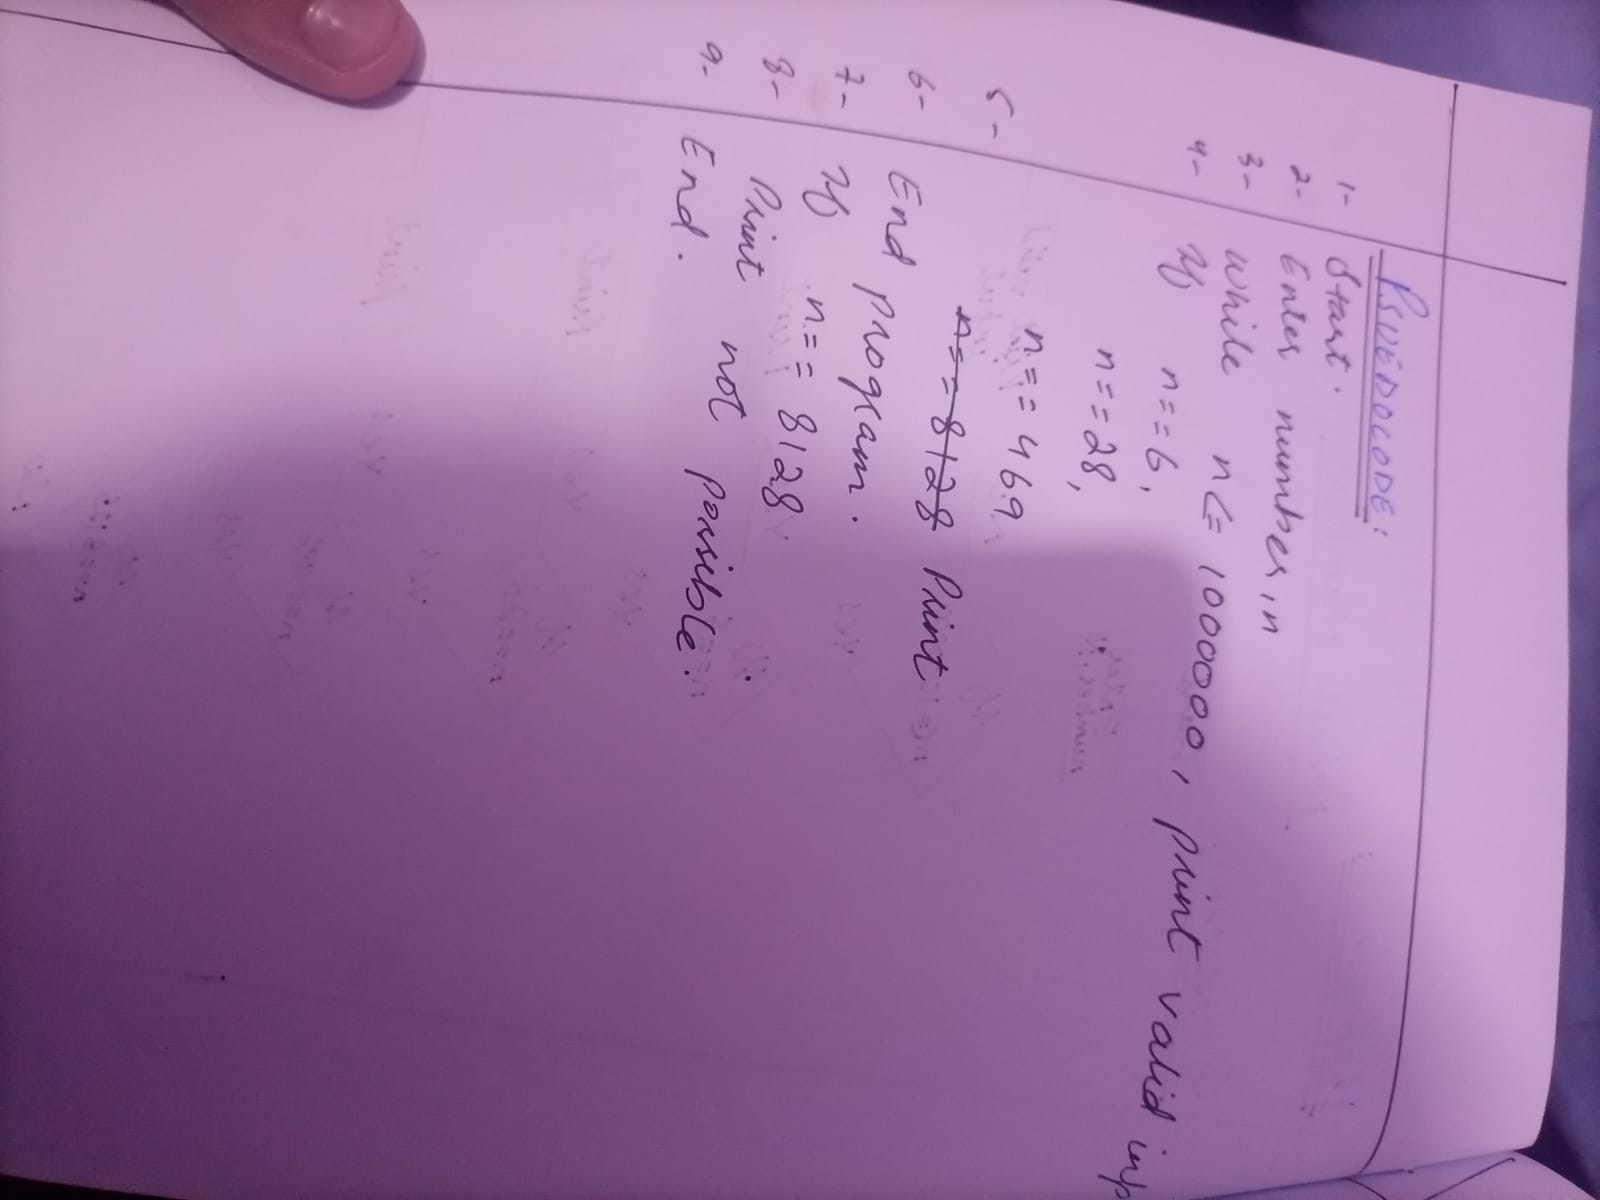 PSUEDOCODE:
1- Start.
2- Enter number, n
3- While n <= 1000000, print valid inp
4- If n == 6,
n == 28,
n == 469
5- n == 8128 Print
6- End program.
7- If n == 8128
8- Print not possible.
9- End.